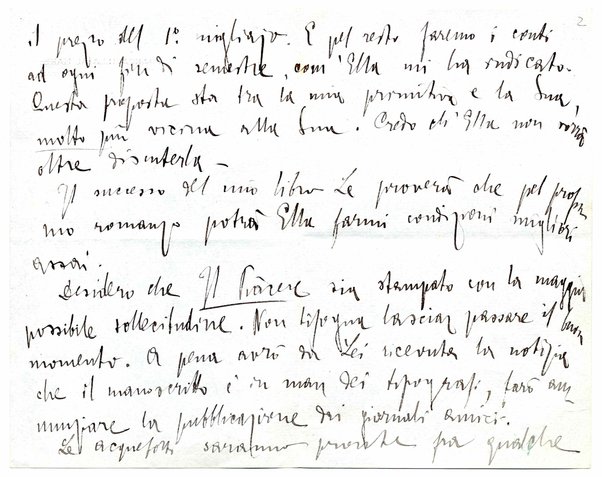 2
il prezzo del 1.° migliajo. E pel resto faremo i conti
ad ogni fin di semestre, com'Ella mi ha indicato.
Questa proposta sta tra la mia primitiva e la Sua,
molto più vicina alla Sua. Credo ch'Ella non vorrà
oltre discuterla –
Il successo del mio libro Le proverà che pel prossi-
mo romanzo potrà Ella farmi condizioni migliori
assai.
Desidero che Il Piacere sia stampato con la maggior
possibile sollecitudine. Non bisogna lasciar passare il buon
momento. A pena avrò da Lei ricevuta la notizia
che il manoscritto è in man dei tipografi, farò an-
nunziare la pubblicazione dai giornali amici.
Le acqueforti saranno pronte fra qualche